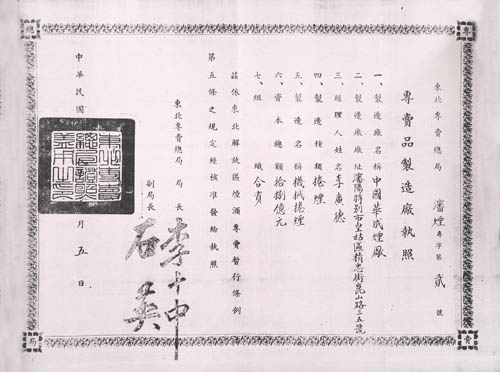 東北專賣總局 瀋煙專字第貳號
專賣品製造廠執照
一、製造廠名稱中國華成煙廠
二、製造廠廠址瀋陽特別市皇姑區精忠街崑山路三五號
三、經理人姓名李廣德
四、製造種類捲煙
五、製造名稱機械捲煙
六、資本總額拾捌億元
七、組織合資
茲依東北解放區煙酒專賣暫行條例
第五條之規定經核准發給執照
東北專賣總局 局長 李士中
副局長 石英
中華民國
月五日
專
賣
總
局